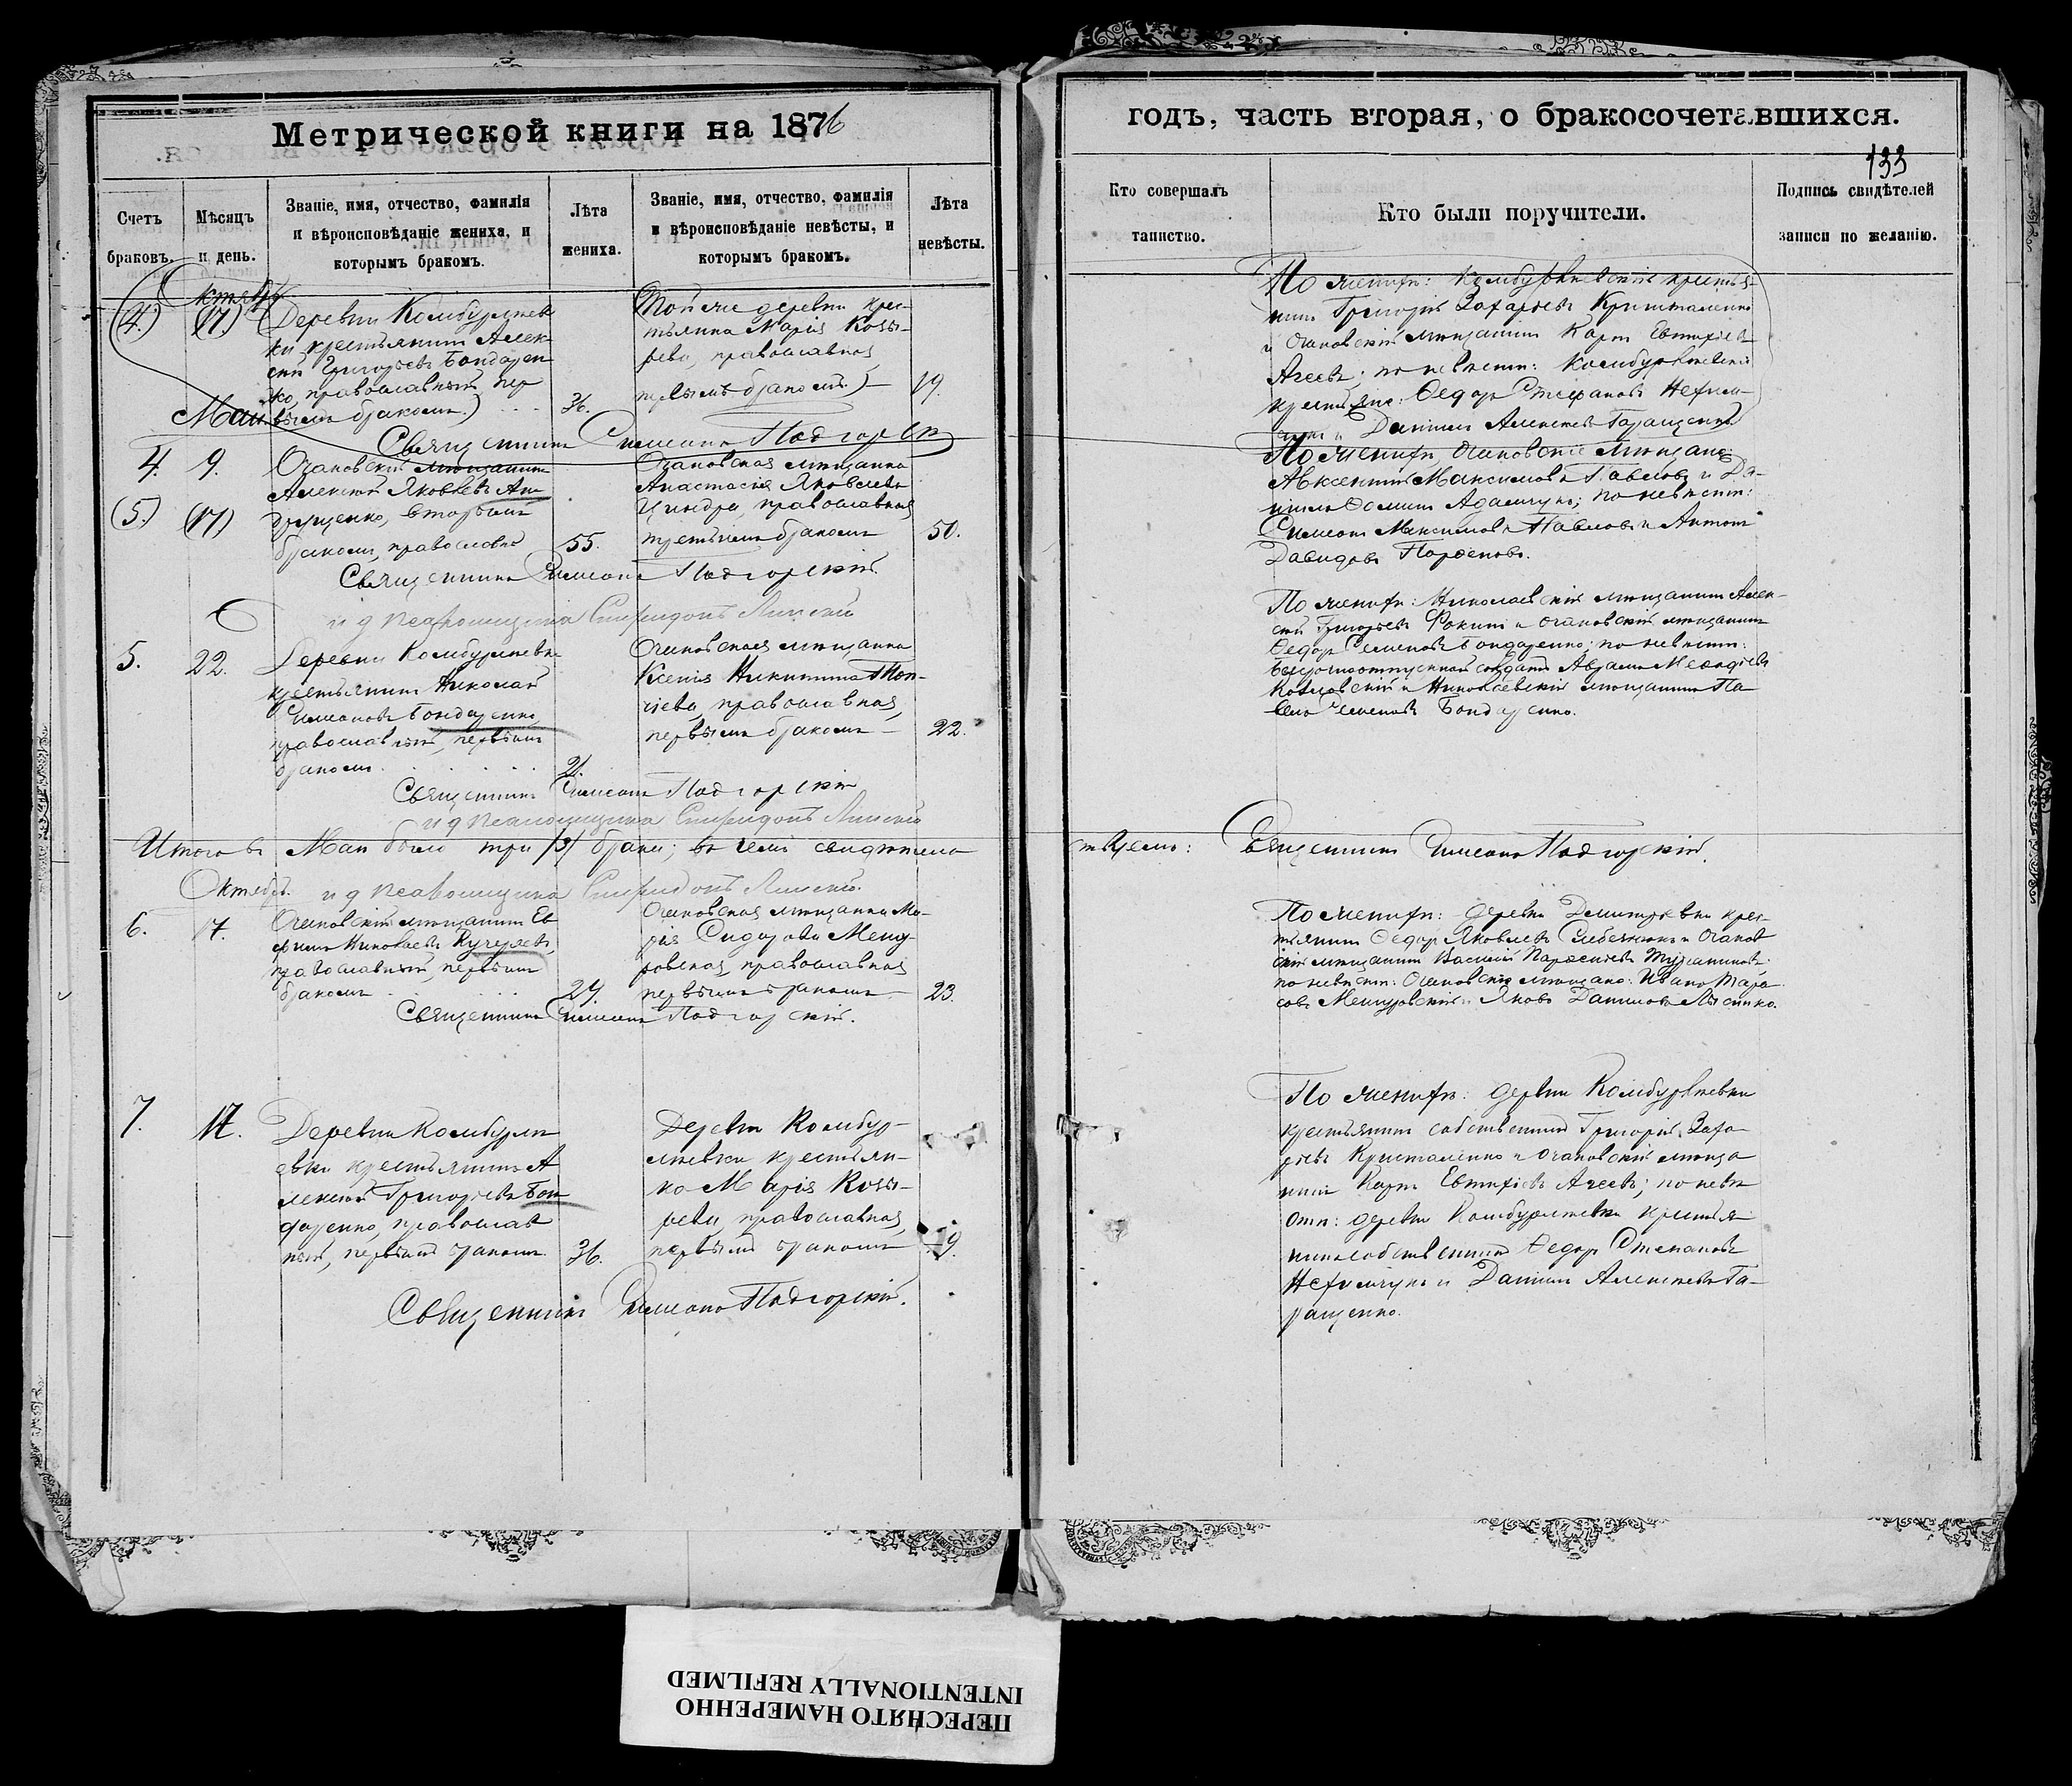 Метрической книги на 1876
Счетъ браковъ.
Мѣсяцъ и день.
Званіе, имя, отчество, фамилія
и вѣроисповѣданіе жениха, и
которымъ бракомъ.
Лѣта
жениха.
Званіе, имя, отчество, фамилія
и вѣроисповѣданіе невѣсты, и
которымъ бракомъ.
Лѣта
невѣсты.
Октябрь
(4.)
(17)
Деревни Комбурлѣев
ки крестьянинъ Алек-
сій Григорьевъ Бондарен-
ко, православный, пер
вымъ бракомъ.)
36.
Той же деревни крес-
тьянка Марія Козы-
рева, православная,
первымъ бракомъ.)
19.
Маи
Священникъ Симеонъ Подгорскій
4.
9.
(5.)
(17)
Очаковскій мѣщанинъ
Алексій Яковлевъ Ан-
друщенко, вторымъ
бракомъ, православный
55.
Очаковская мѣщанка
Анастасія Яковлева
Циндра, православная
третьимъ бракомъ
50.
Священникъ Симеонъ Подгорскій.
и д псаломщика Спиридонъ Линскій
5.
22.
Деревни Комбурлѣевки
крестьянинъ Николай
Симеоновъ Бондаренко,
православный, первымъ
бракомъ
21.
Очаковская мѣщанка
Ксенія Никитина Топ-
чіева, православная,
первымъ бракомъ
22.
Священникъ Симеонъ Подгорскій
и д псаломщика Спиридонъ Линскій
Итого въ Маи было три /3/ брака; въ чемъ свидѣтель
Октябрь. и д псаломщика Спиридонъ Линскій.
6.
17.
Очаковскій мѣщанинъ Ев-
фимъ Николаевъ Кучеряевъ,
православный, первымъ
бракомъ
29.
Очаковская мѣщанка Ма-
рія Сидорова Менду-
ровская, православная
первымъ бракомъ
23.
Священникъ Симеонъ Подгорскій.
7.
17.
Деревни Комбурлѣ
евки крестьянинъ А
лексій Григорьевъ Бон
даренко, православ
ный, первымъ бракомъ.
36.
Деревни Комбур-
лѣевки крестьян-
ка Марія Козы-
рева, православная,
первымъ бракомъ
19.
Священникъ Симеонъ Подгорскій.
годъ, часть вторая, о бракосочетавшихся.
133
Кто совершалъ
таинство.
Кто были поручители.
Подпись свидѣтелей
записи по желанію.
По женихѣ: Комбурлѣевскій крестья-
нинъ Григорій Захарьевъ Кришталенко
и Очаковскій мѣщанинъ Карпъ Евтихіевъ
Агеевъ; по невѣстѣ: Комбурлѣевскіе
крестьяне: Ѳедоръ Стефановъ
и Даніилъ Алексѣевъ Таращенко
По женихѣ Очаковскіе мѣщане
Авксентій Максимовъ Павловъ и Да-
ніилъ Ѳоминъ Адамчукъ; по невѣстѣ:
Симеонъ Максимовъ Павловъ и Антонъ
Давидовъ Парѳеновъ.
По женихѣ: Николаевскій мѣщанинъ Алек-
сій Григорьевъ Фокинъ и Очаковскій мѣщанинъ
Ѳедоръ Семеновъ Бондаренко; по невѣстѣ:
безсрочноотпускной солдатъ Авраамъ
Козловскій и Николаевскій мѣщанинъ Па-
велъ Семеновъ Бондаренко.
ствуемъ: Священникъ Симеонъ Подгорскій.
По женихѣ: деревни Дмитріевки крес-
тьянинъ Ѳедоръ Яковлевъ и Очаков
скій мѣщанинъ Василій Парѳеніевъ
по невѣстѣ: Очаковскіе мѣщане: Иванъ Тара-
совъ и Яковъ Даниловъ Лысенко.
По женихѣ: деревни Комбурлѣевки
крестьянинъ собственникъ Григорій Заха-
рьевъ Кришталенко и Очаковскій мѣща
нинъ Карпъ Евтихіевъ Агеевъ; по невѣ
стѣ: деревни Комбурлѣевки крестья-
нинъ собственникъ Ѳедоръ Степановъ
и Даніилъ Алексѣевъ Та-
ращенко.
ПЕРЕСНЯТО НАМЕРЕННО
INTENTIONALLY REFILMED